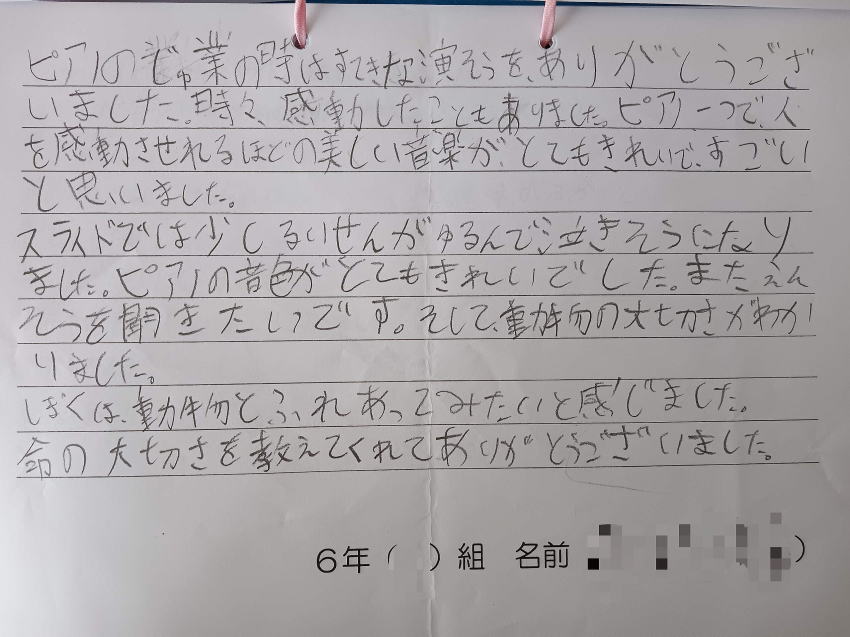 ピアノのじゅ業の時はすてきな演そうを、ありがとうござ
いました。時々、感動したこともありました。ピアノ一つで、人
を感動させれるほどの美しい音楽が、とてもきれいで、すごい
と思いました。
スライドでは少しるいせんがゆるんで泣きそうになり
ました。ピアノの音色がとてもきれいでした。またえん
そうを聞きたいです。そして、動物の大切さがわか
りました。
ぼくは、動物とふれあってみたいと感じました。
命の大切さを教えてくれてありがとうございました。
6年( )組 名前 )